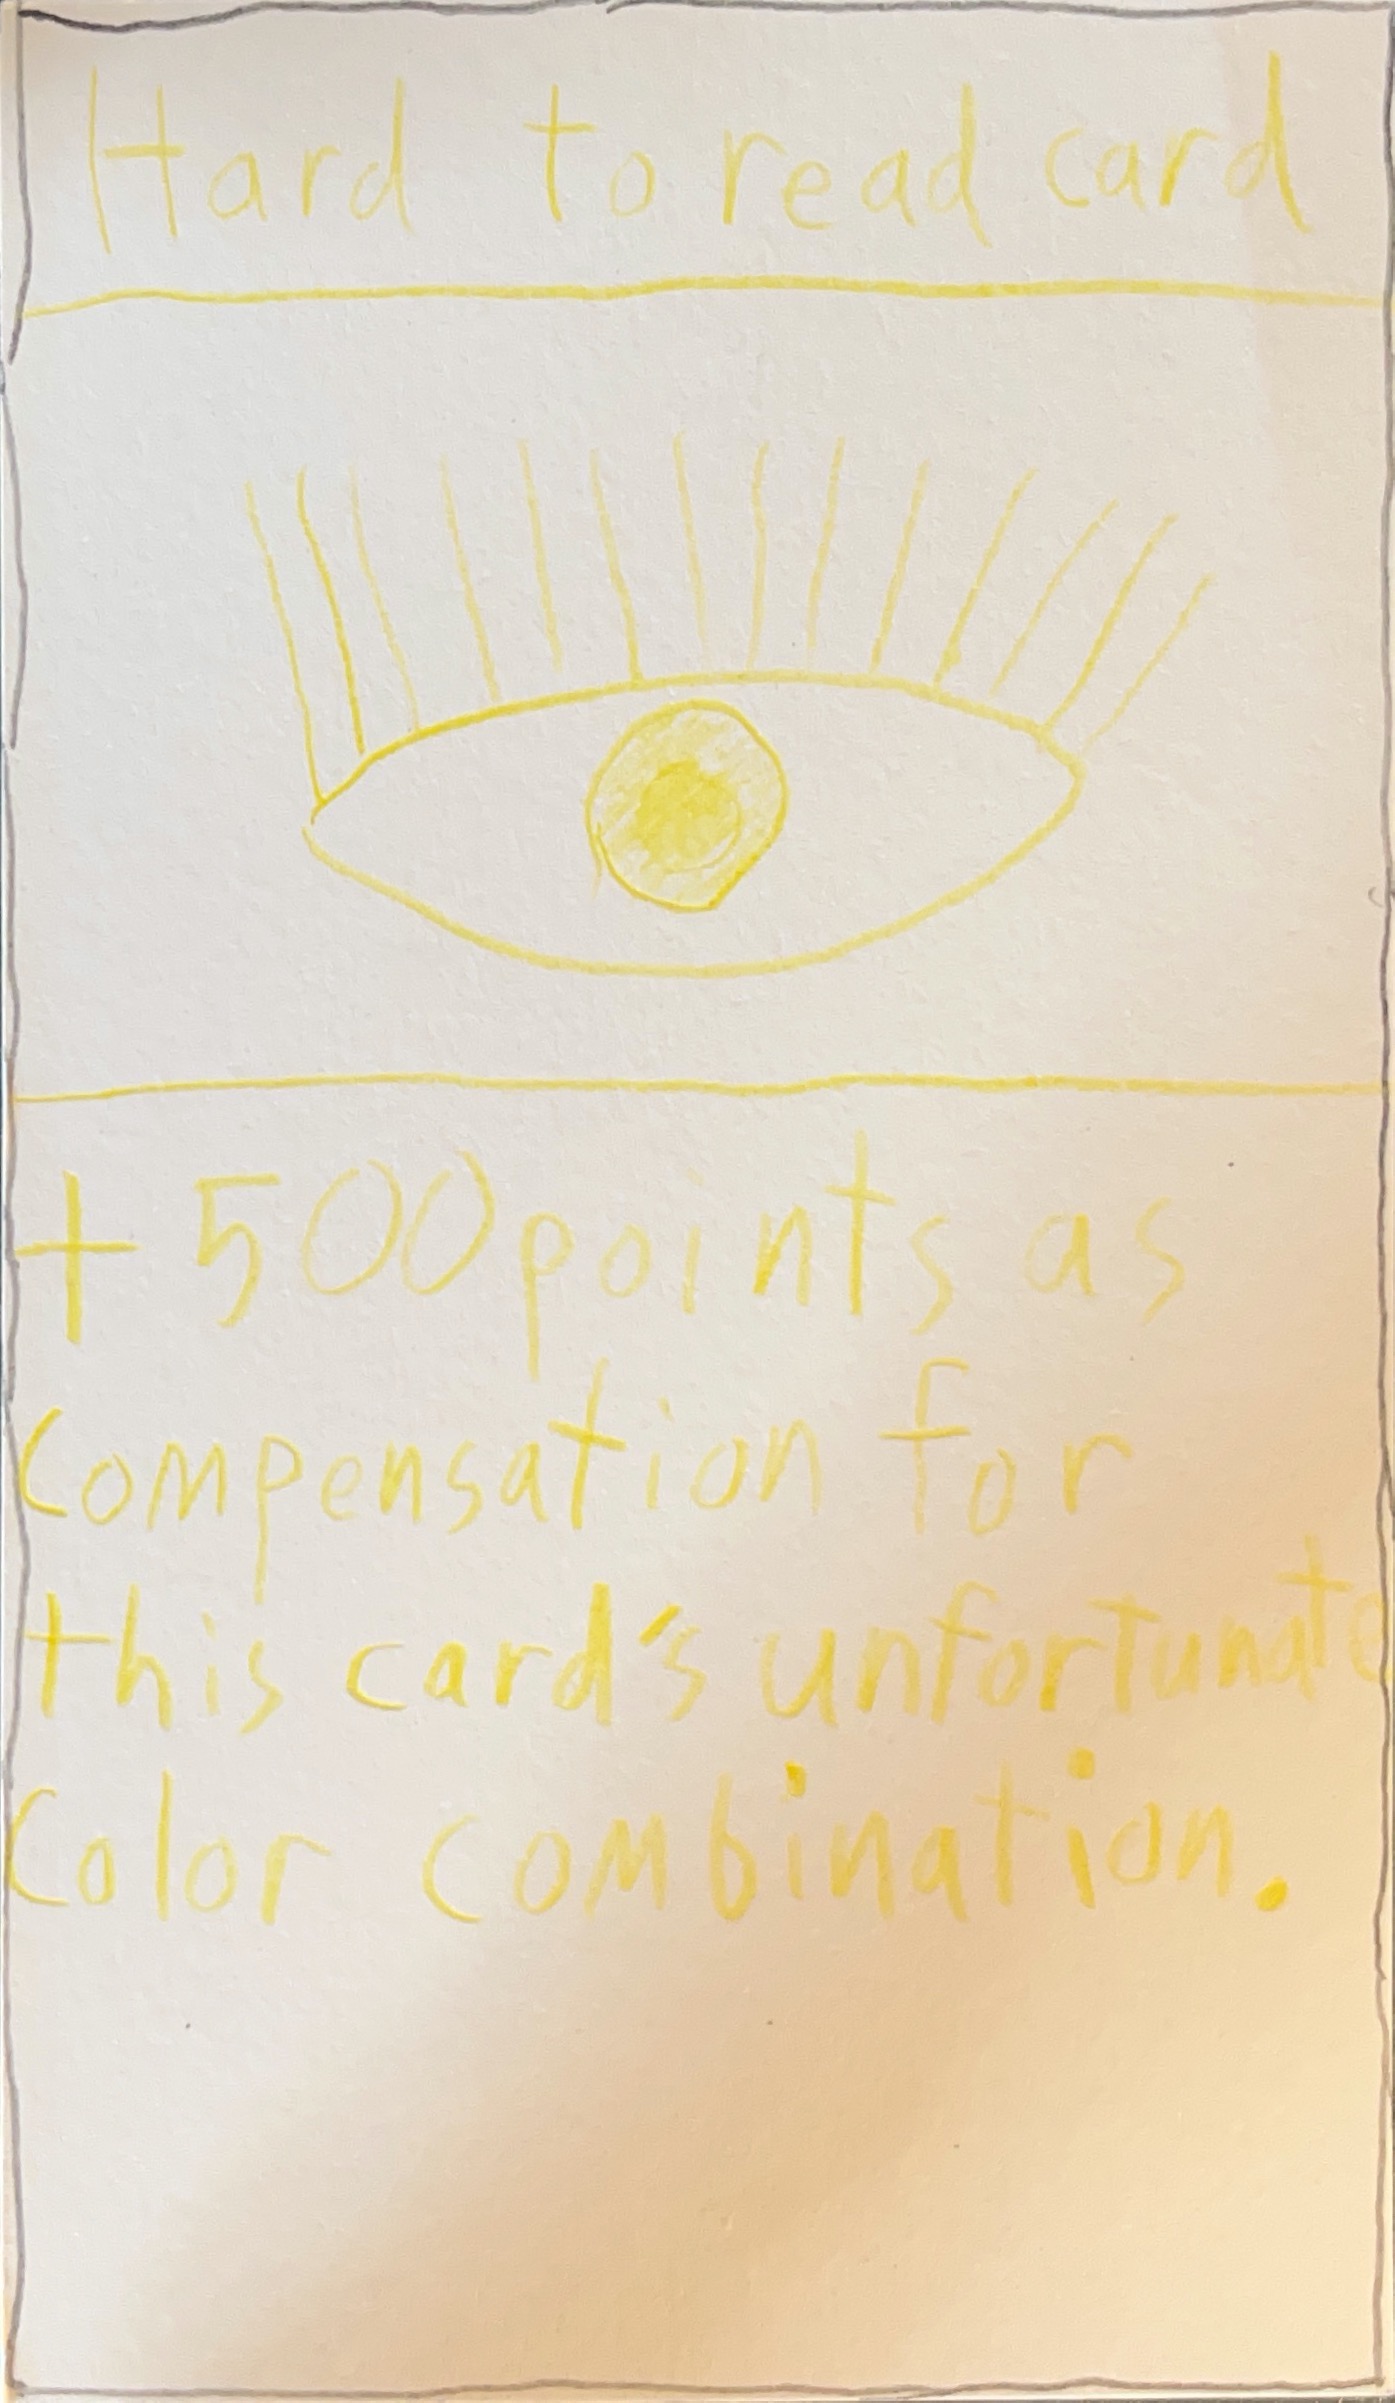 Hard to read card
+500 points as
compensation for
this card's unfortunate
color combination.